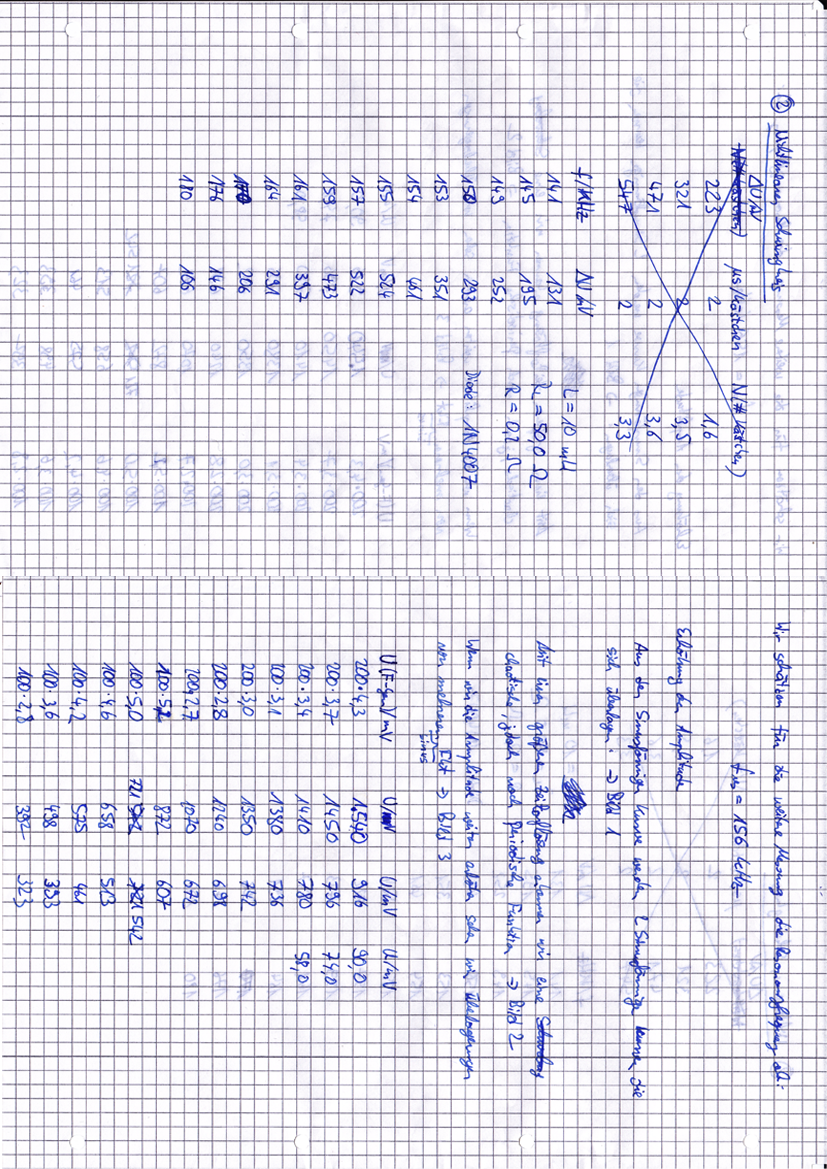 ② Nichtlinearer Schwingkreis
ΔU/V
μs/Kästchen
N(# Kästchen)
223 2 1,6
321 2 3,5
471 2 3,6
547 2 3,3
f/kHz N/mV
141 131 L = 10 mH
145 195 R_L = 50,0 Ω
149 252 R = 0,2 Ω
150 293 Diode: 1N4007
153 351
154 461
155 524
157 522
159 473
161 397
164 291
170 206
176 146
180 106
Wir schätzen für die weitere Messung die Resonanzfrequenz ab:
f_res = 156 kHz
Erhöhung der Amplitude
Aus der Sinusförmige Kurve werden 2 Sinusförmige Kurven, die
sich überlagern. → Bild 1
Mit einer größeren Zeitauflösung erkennen wir eine
chaotische, jedoch noch periodische Funktion → Bild 2
Wenn wir die Amplitude weiter erhöhen sehen wir Überlagerungen
von mehreren → Bild 3
sinus
U(F-Gen)/mV U/mV U/mV U/mV
200·4,3 1540 916 90,0
200·3,7 1450 796 74,0
200·3,4 1410 780 58,0
200·3,1 1380 736
200·3,0 1350 742
200·2,8 1240 698
200·2,7 1070 672
100·5,2 872 607
100·5,0 721 542
100·4,6 658 513
100·4,2 575 461
100·3,6 498 393
100·2,8 392 323